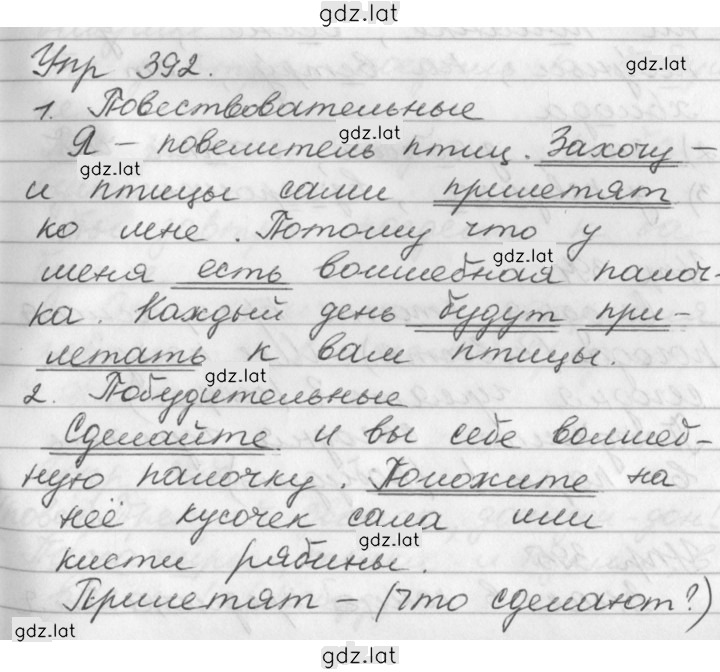 gdz.lat
Упр 392.
gdz.lat
1. Повествовательные
gdz.lat
Я – повелитель птиц. Захочу –
gdz.lat
и птицы сами прилетят
ко мне. Потому что у
gdz.lat
меня есть волшебная палоч-
ка. Каждый день будут при-
летать к вам птицы.
gdz.lat
2. Побудительные
Сделайте и вы себе волшеб-
ную палочку. Положите на
неё кусочек сала или
gdz.lat
кисти рябины.
Прилетят – (что сделают?)
gdz.lat
gdz.lat